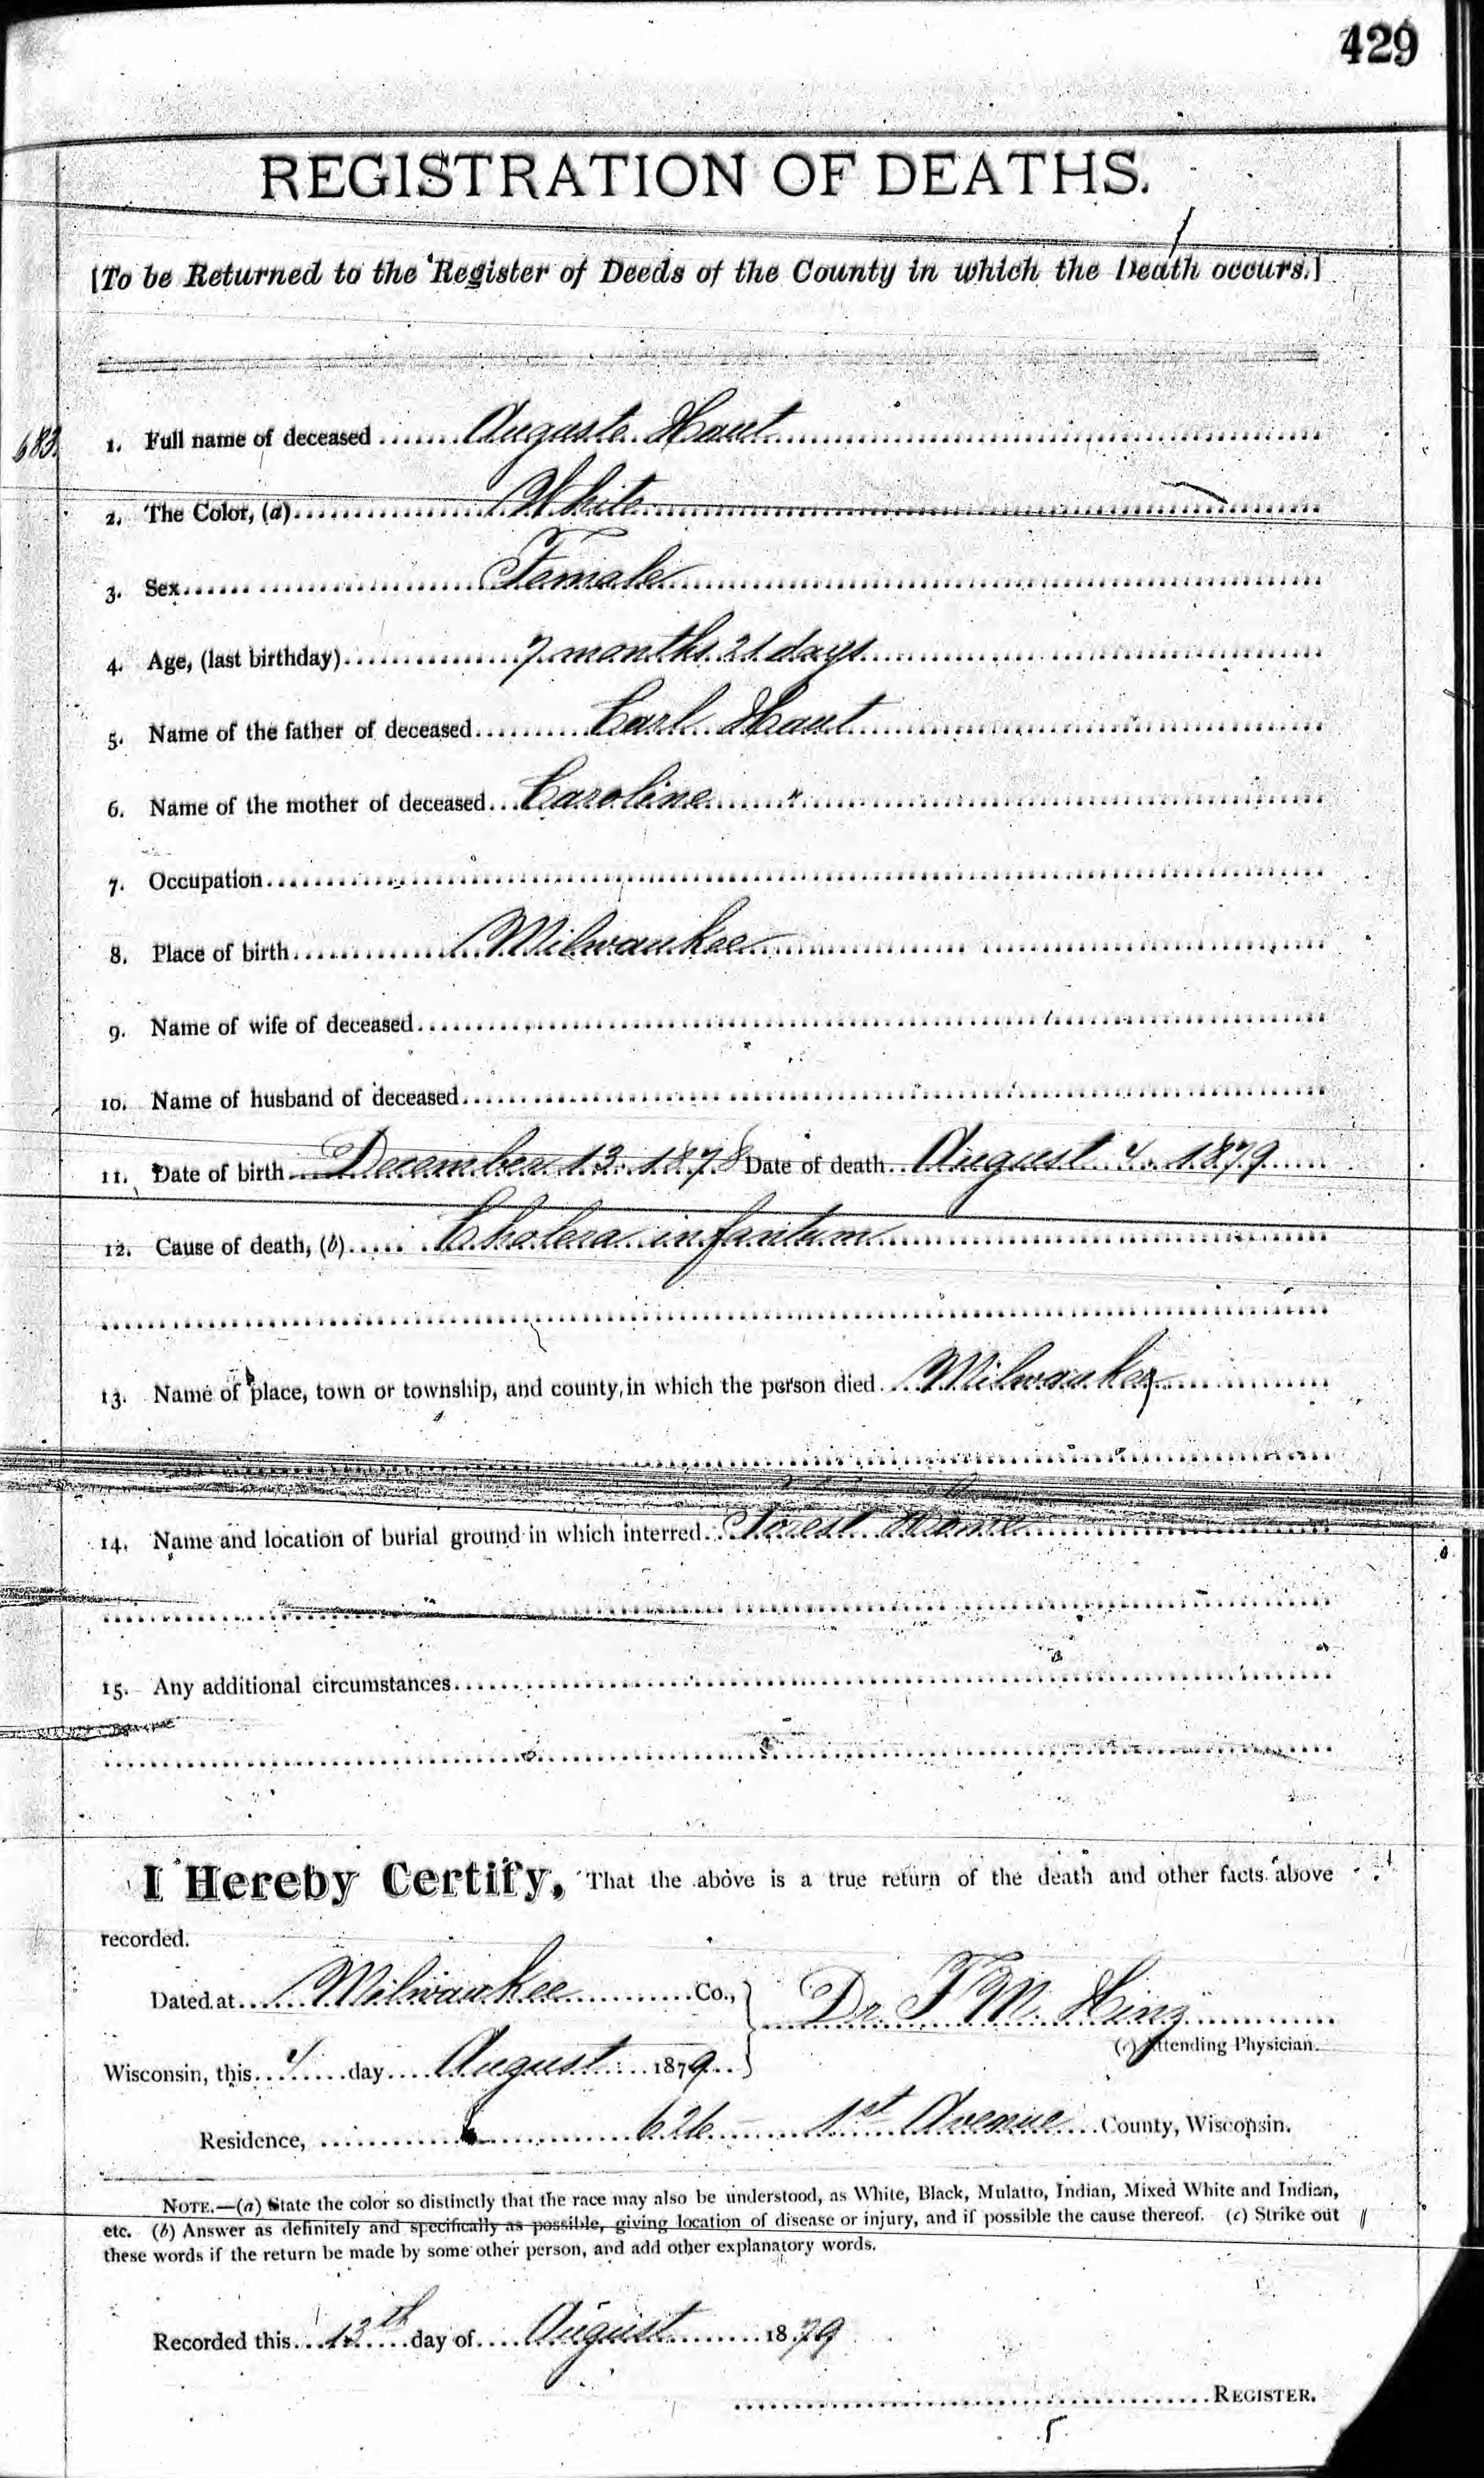 429
REGISTRATION OF DEATHS.
[To be Returned to the Register of Deeds of the County in which the Death occurs.]
683. 1. Full name of deceased Auguste Haut
2. The Color, (a) White
3. Sex Female
4. Age, (last birthday) 7 months 21 days
5. Name of the father of deceased Carl Haut
6. Name of the mother of deceased Caroline "
7. Occupation
8. Place of birth Milwaukee
9. Name of wife of deceased
10. Name of husband of deceased
11. Date of birth December 13. 1878 Date of death August 4. 1879
12. Cause of death, (b) Cholera infantum
13. Name of place, town or township, and county, in which the person died Milwaukee
14. Name and location of burial ground in which interred Forest Home
15. Any additional circumstances
I Hereby Certify, That the above is a true return of the death and other facts above
recorded.
Dated at Milwaukee Co., Dr. F. M. Hinz
(c) Attending Physician.
Wisconsin, this 4 day August 1879
Residence, 626 1st Avenue County, Wisconsin.
NOTE.—(a) State the color so distinctly that the race may also be understood, as White, Black, Mulatto, Indian, Mixed White and Indian,
etc. (b) Answer as definitely and specifically as possible, giving location of disease or injury, and if possible the cause thereof. (c) Strike out
these words if the return be made by some other person, and add other explanatory words.
Recorded this 13th day of August 1879
REGISTER.